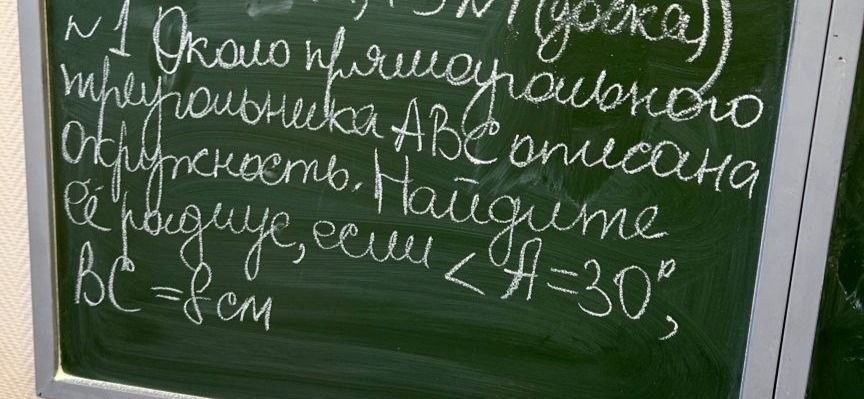 (доска)
№1 Около прямоугольного
треугольника ABC описана
окружность. Найдите
её радиус, если < A=30°,
BC =8 см